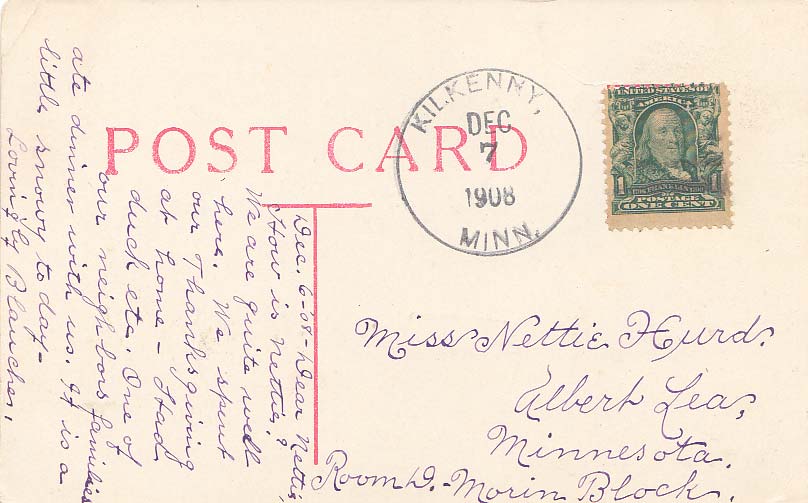 POST CARD
KILKENNY,
DEC
7
1908
MINN.
UNITED STATES OF
AMERICA
1 FRANKLIN 1
POSTAGE
ONE CENT
Dec. 6-'08- Dear Nettie,
How is Nettie?
We are quite well
here. We spent
our Thanksgiving
at home - Had
duck etc. One of
our neighbors families
ate dinner with us. It is a
little snowy to day-
Lovingly Blanche.
Miss Nettie Hurd.
Albert Lea,
Minnesota.
Room D. - Morin Block.